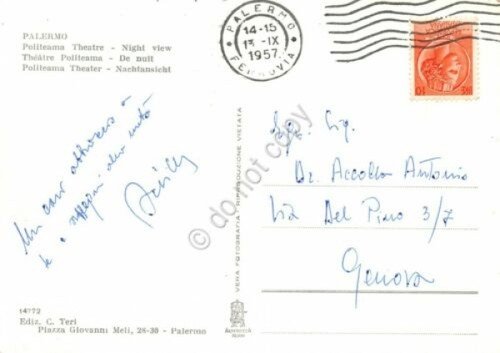 PALERMO
Politeama Theatre - Night view
Théâtre Politeama - De nuit
Politeama Theater - Nachtansicht
PALERMO
14-15
IX
1957
FERROVIA
Un caro abbraccio a
te e
Achille
Egr. Sig.
Dr. Accolla Antonio
Via Del Piano 3/7
Genova
VERA FOTOGRAFIA - RIPRODUZIONE VIETATA
© do not copy
14772
Ediz. C. Teri
Piazza Giovanni Meli, 28-30 - Palermo